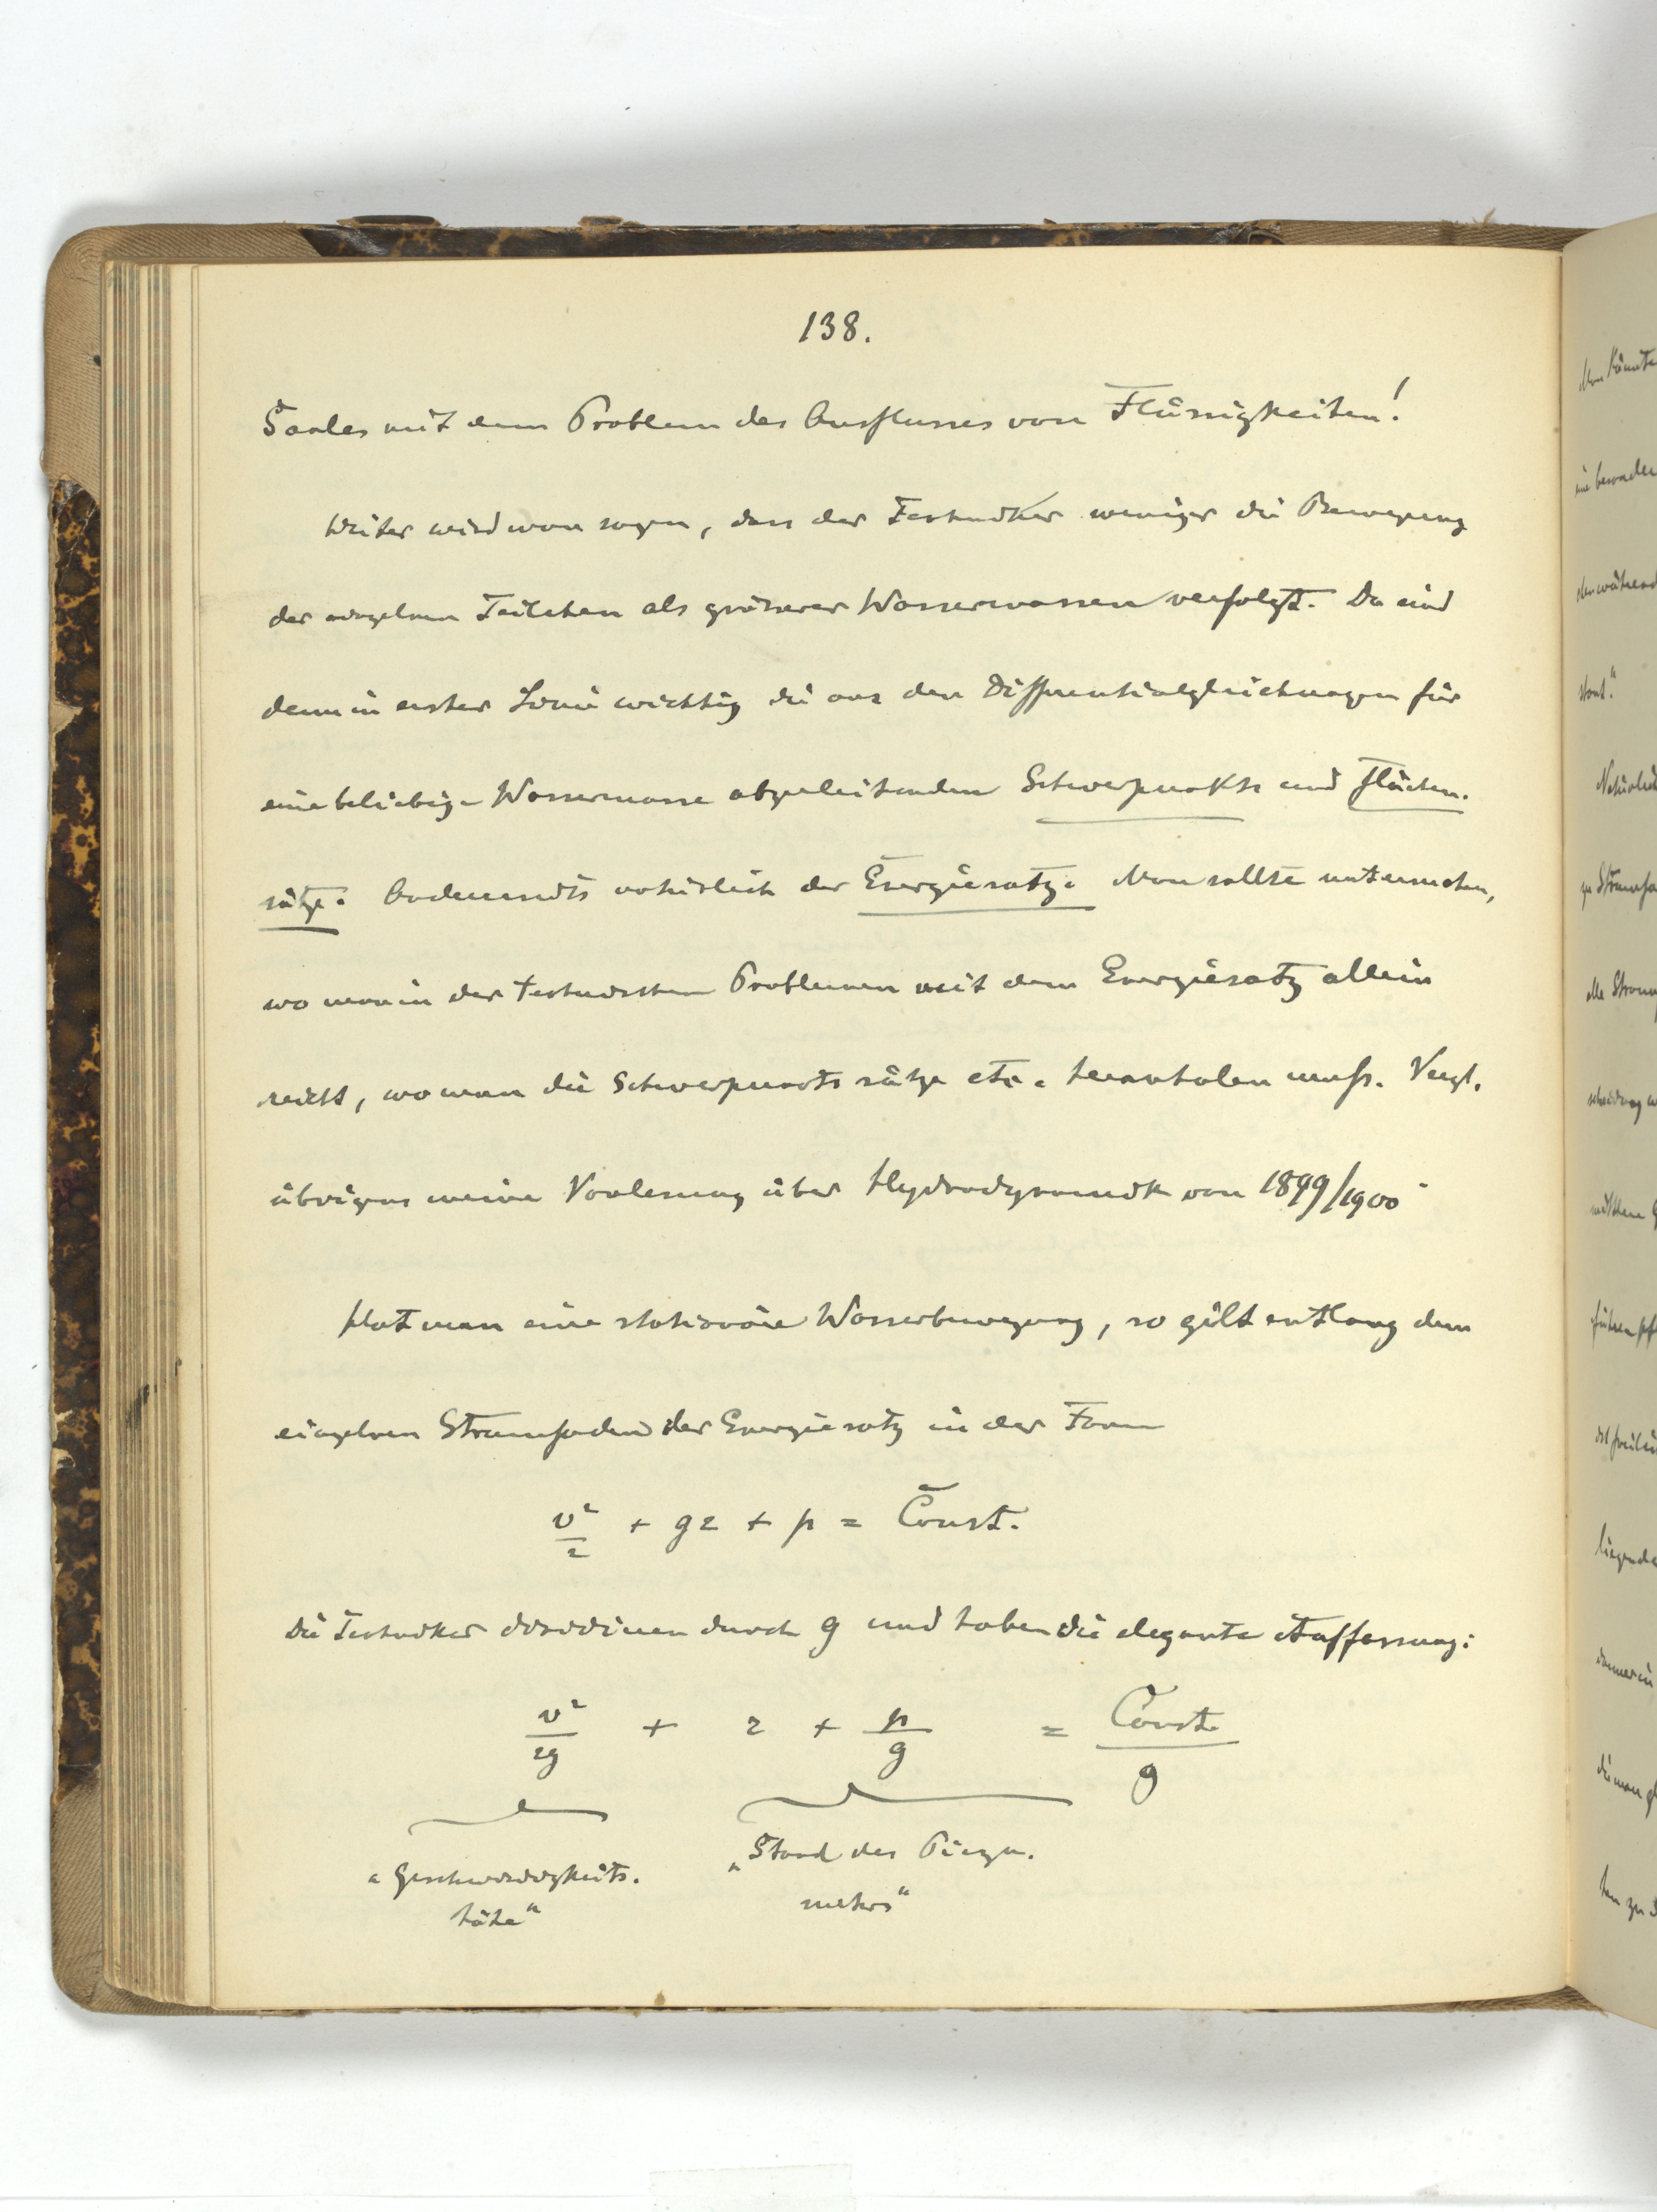 138.
Saales mit dem Problem des Ausflusses von Flüssigkeiten!
Weiter wird man sagen, dass der Techniker weniger die Bewegung
der einzelnen Teilchen als grösserer Wassermassen verfolgt. Da sind
denn in erster Linie wichtig die aus den Differentialgleichungen für
eine beliebige Wassermasse abzuleitenden Schwerpunkts und Flächen-
sätze. Andererseits natürlich der Energiesatz. Man sollte untersuchen,
wo man in der technischen Problemen mit dem Energiesatz allein
reicht, wo man die Schwerpunktssätze etc. heranholen muss. Vergl.
übrigens meine Vorlesung über Hydrodynamik von 1899/1900.
Hat man eine stationäre Wasserbewegung, so gilt entlang dem
einzelnen Stromfaden der Energiesatz in der Form
v²/2 + gz + p = Const.
Die Techniker dividieren durch g und haben die elegante Auffassung:
v²/2g + z + p/g = Const./g
„Geschwindigkeits- „Stand des Piezo-
höhe“ meters“
Man könnte
alle Strom
liegende
die man